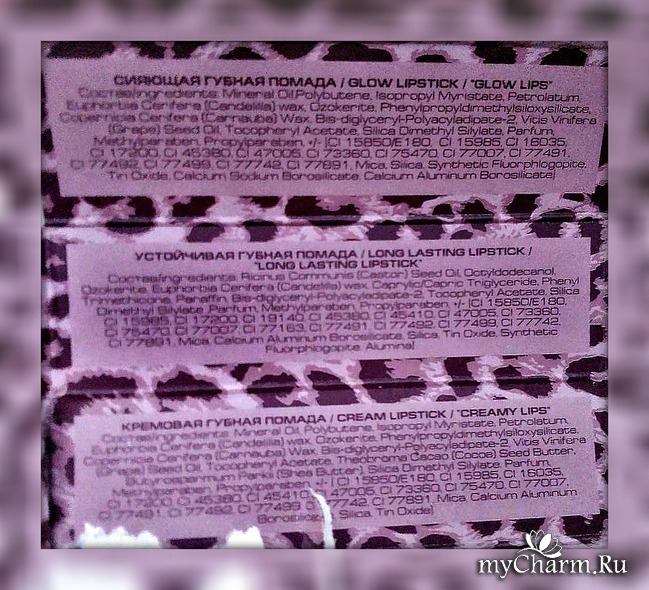 СИЯЮЩАЯ ГУБНАЯ ПОМАДА / GLOW LIPSTICK / "GLOW LIPS"
Состав/Ingredients: Mineral Oil, Polybutene, Isopropyl Myristate, Petrolatum,
Euphorbia Cerifera (Candelilla) wax, Ozokerite, Phenylpropyldimethylsiloxysilicate,
Copernicia Cerifera (Carnauba) Wax, Bis-diglyceryl-Polyacyladipate-2, Vitis Vinifera
(Grape) Seed Oil, Tocopheryl Acetate, Silica Dimethyl Silylate, Parfum,
Methylparaben, Propylparaben, +/- [CI 15850/E180, CI 15985, CI 16035,
CI 17200, CI 45380, CI 47005, CI 73360, CI 75470, CI 77007, CI 77491,
CI 77492, CI 77499, CI 77742, CI 77891, Mica, Silica, Synthetic Fluorphlogopite,
Tin Oxide, Calcium Sodium Borosilicate, Calcium Aluminum Borosilicate]
УСТОЙЧИВАЯ ГУБНАЯ ПОМАДА / LONG LASTING LIPSTICK /
"LONG LASTING LIPSTICK"
Состав/Ingredients: Ricinus Communis (Castor) Seed Oil, Octyldodecanol,
Ozokerite, Euphorbia Cerifera (Candelilla) wax, Caprylic/Capric Triglyceride, Phenyl
Trimethicone, Paraffin, Bis-diglyceryl-Polyacyladipate-2, Tocopheryl Acetate, Silica
Dimethyl Silylate, Parfum, Methylparaben, Propylparaben, +/- [CI 15850/E180,
CI 15985, CI 17200, CI 19140, CI 45380, CI 45410, CI 47005, CI 73360,
CI 75470, CI 77007, CI 77163, CI 77491, CI 77492, CI 77499, CI 77742,
CI 77891, Mica, Calcium Aluminum Borosilicate, Silica, Tin Oxide, Synthetic
Fluorphlogopite, Alumina]
КРЕМОВАЯ ГУБНАЯ ПОМАДА / CREAM LIPSTICK / "CREAMY LIPS"
Состав/Ingredients: Mineral Oil, Polybutene, Isopropyl Myristate, Petrolatum,
Euphorbia Cerifera (Candelilla) wax, Ozokerite, Phenylpropyldimethylsiloxysilicate,
Copernicia Cerifera (Carnauba) Wax, Bis-diglyceryl-Polyacyladipate-2, Vitis Vinifera
(Grape) Seed Oil, Tocopheryl Acetate, Theobroma Cacao (Cocoa) Seed Butter,
Butyrospermum Parkii (Shea Butter), Silica Dimethyl Silylate, Parfum,
Methylparaben, Propylparaben, +/- [CI 15850/E180, CI 15985, CI 16035,
CI 17200, CI 45380, CI 45410, CI 47005, CI 73360, CI 75470, CI 77007,
CI 77491, CI 77492, CI 77499, CI 77742, CI 77891, Mica, Calcium Aluminum
Borosilicate, Silica, Tin Oxide]
myCharm.Ru